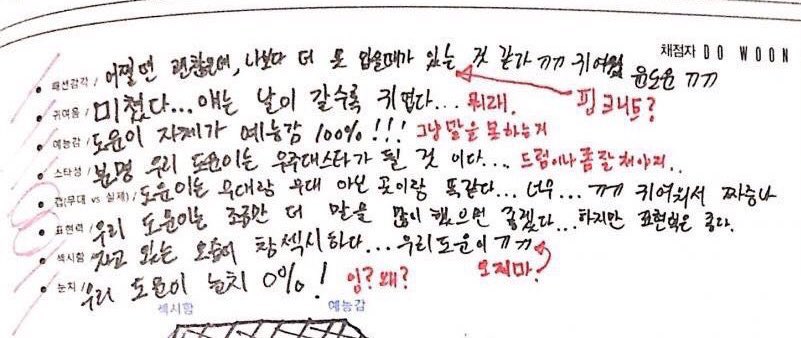 채점자 DO WOON
패션감각 / 어쩔 땐 괜찮은데, 나보다 더 못 입을때가 있는 것 같다 ㄲㄲ 귀여워 윤도운 ㄲㄲ
핑크니트?
귀여움 / 미쳤다... 얘는 날이 갈수록 귀엽다... 뭐래.
예능감 / 도운이 자체가 예능감 100%!!! 그냥 말을 못하는거
스타성 / 분명 우리 도운이는 우주대스타가 될 것 이다... 드럼이나 좀 잘 쳐야지..
갭(무대 vs 실제) / 도운이는 무대랑 무대 아닌 곳이랑 똑같다... 너무... ㄲㄲ 귀여워서 짜증나
표현력 / 우리 도운이는 조금만 더 말을 많이 했으면 좋겠다... 하지만 표현력은 좋다.
섹시함 / 자고 있는 모습이 참 섹시하다... 우리도운이 ㄲㄲ
오지마.
눈치 / 우리 도운이 눈치 0%! 잉? 왜?
섹시함 예능감